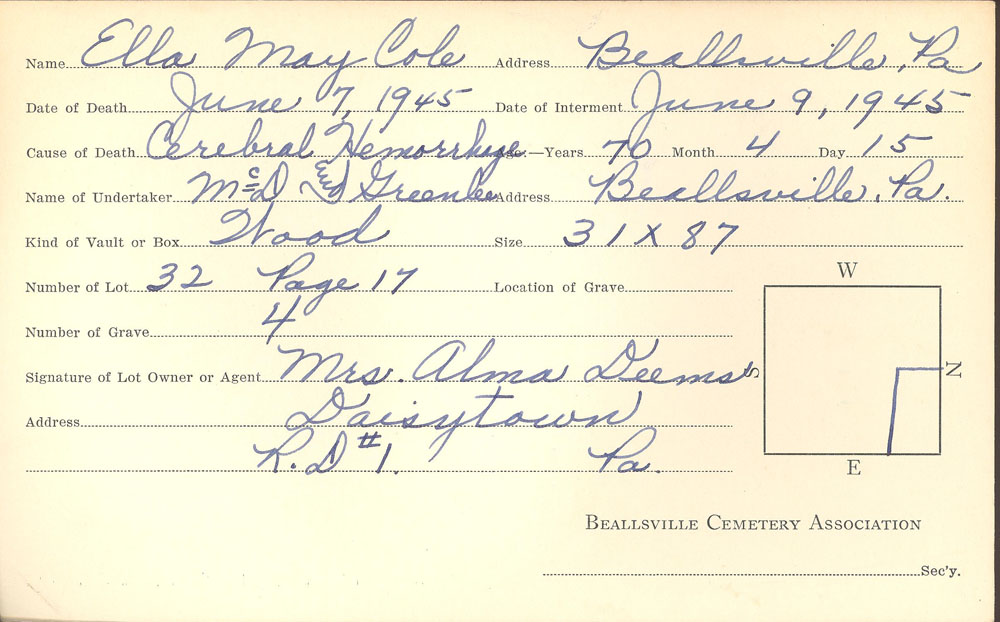 Name Ella May Cole Address Beallsville, Pa
Date of Death June 7, 1945 Date of Interment June 9, 1945
Cause of Death Cerebral Hemorrhage Age:—Years 70 Month 4 Day 15
Name of Undertaker McD and D Greenlee Address Beallsville, Pa.
Kind of Vault or Box Wood Size 31 X 87
Number of Lot 32 Page 17 Location of Grave
Number of Grave 4
Signature of Lot Owner or Agent Mrs. Alma Deems
Address Daisytown
R.D #1. Pa.
W
S
N
E
Beallsville Cemetery Association
Sec'y.